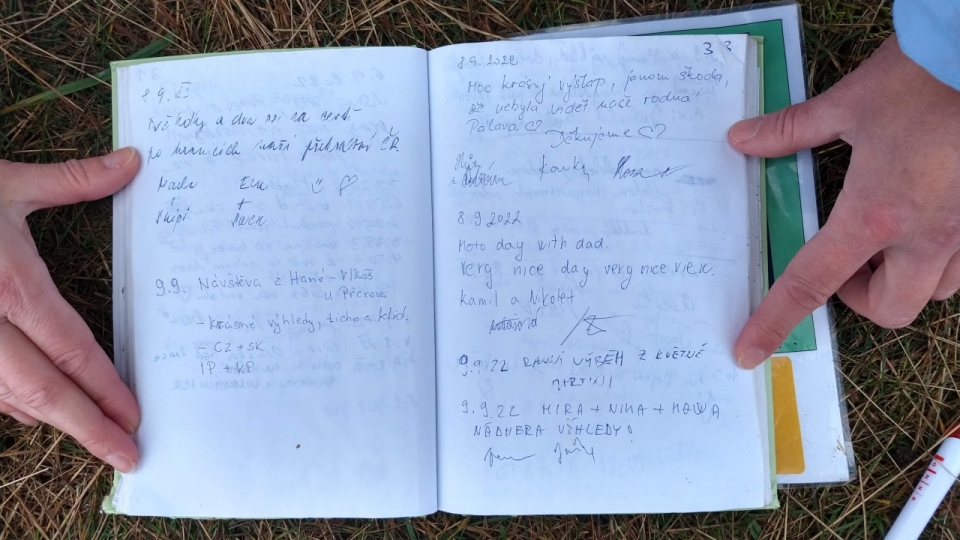 8.9.
a dva na cestě
po hranicích naší překrásné ČR
9.9. Návštěva z Hané - Vlkoš
u Přerova
- krásné výhledy, ticho a klid.
- CZ + SK
IP + KP
33
8.9.2022
Moc krásný výšlap, jenom škoda,
že nebyla vidět naše rodná
Pálava
Děkujeme
8.9 2022
Moto day with dad.
Very nice day very nice view.
Kamil a Nikolet
9.9.22 RANNÍ VÝBĚH Z KVĚTNÉ
9.9.22 MIRA + NINA +
NÁDHERA VÝHLEDY!